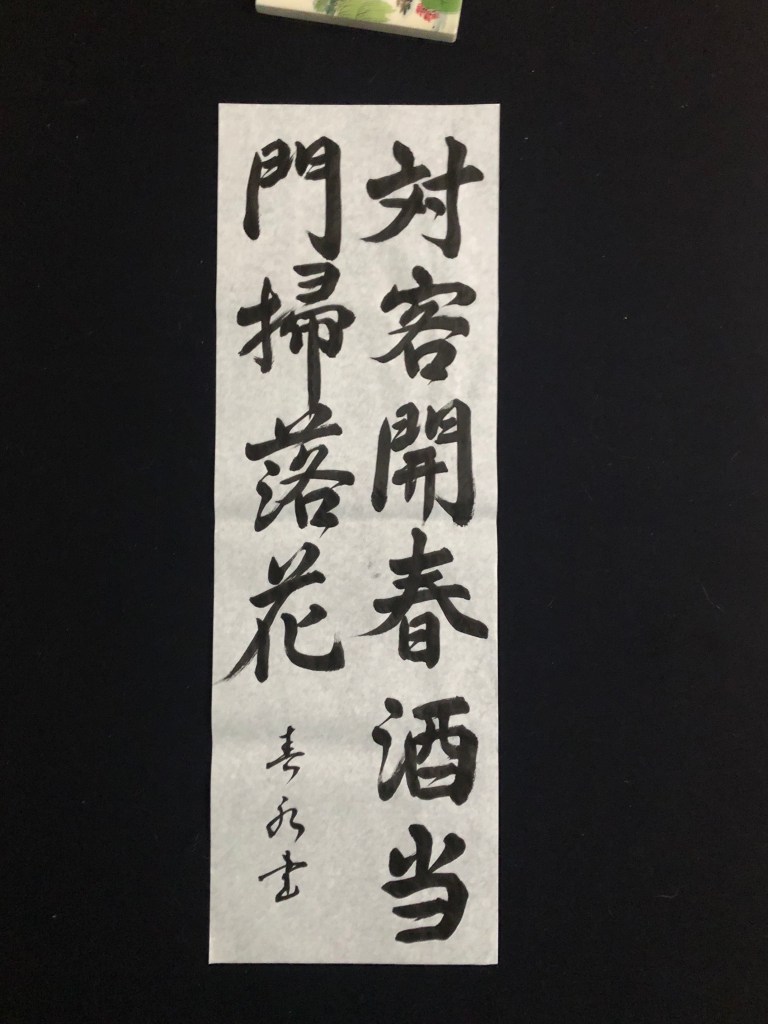 対客開春酒当
門掃落花
春永書